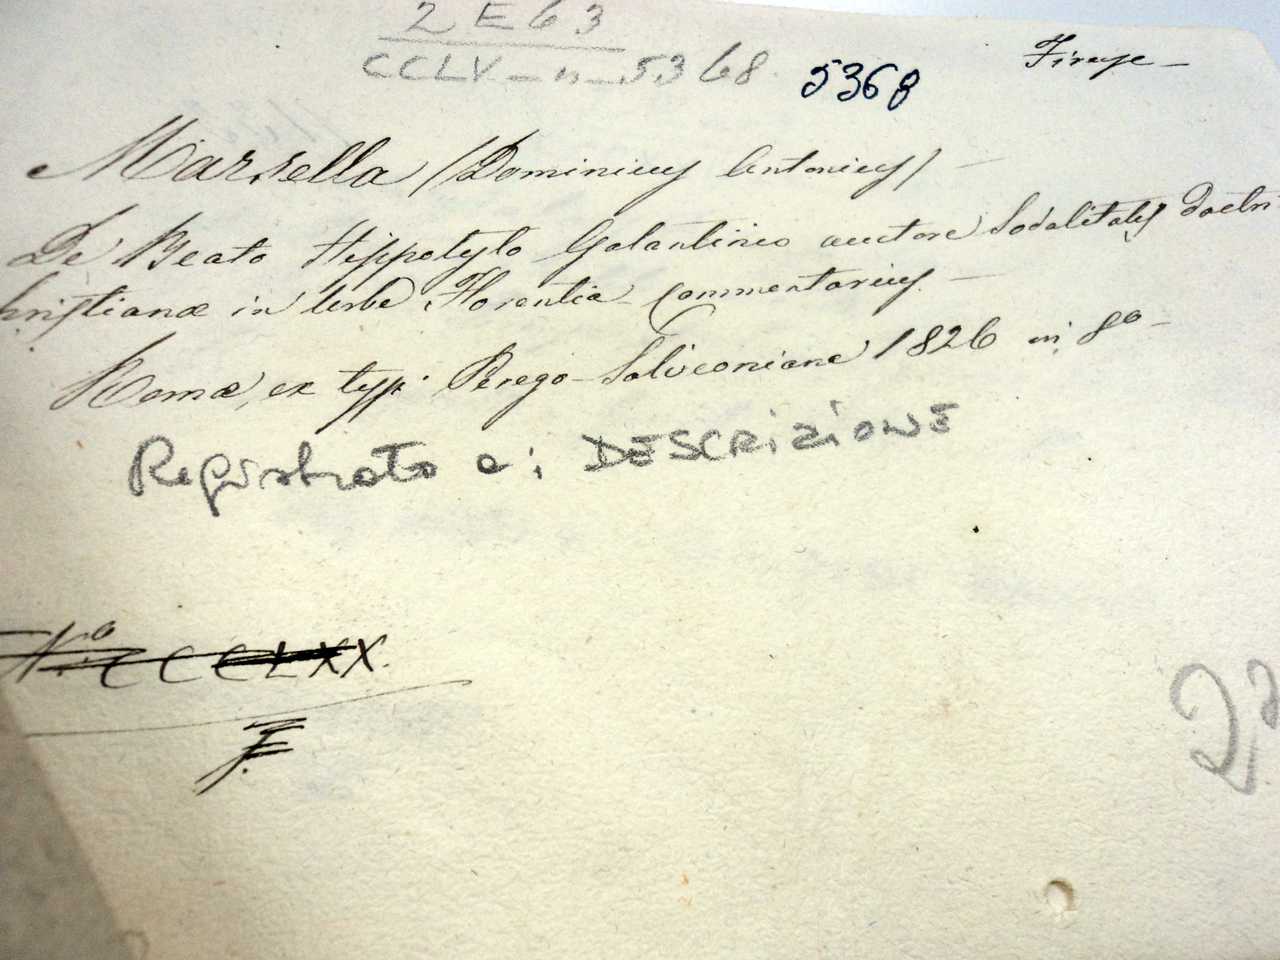 2 E 63
CCLV - n - 5368 5368 Firenze -
Marsella (Dominicus Antonius) -
De Beato Hippolyto Galantinio auctore Sodalitatis doctri
hristianæ in Urbe Florentia Commentarius -
Romæ, ex typ. Perego-Salvioniane 1826 in 8º -
Registrato a: DESCRIZIONE
Nº CCCLXX.
F.